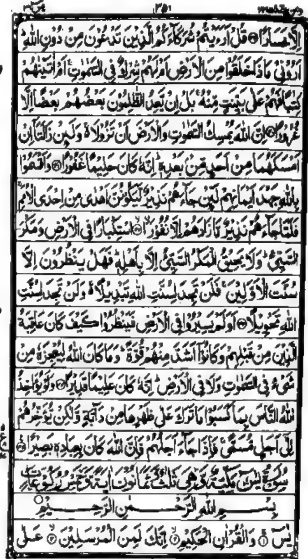 اِلَّا خَسَارًا ۝ قُلْ اَرَءَيْتُمْ شُرَكَآءَكُمُ الَّذِيْنَ تَدْعُوْنَ مِنْ دُوْنِ اللّٰهِ
اَرُوْنِيْ مَاذَا خَلَقُوْا مِنَ الْاَرْضِ اَمْ لَهُمْ شِرْكٌ فِي السَّمٰوٰتِ اَمْ اٰتَيْنٰهُمْ
كِتٰبًا فَهُمْ عَلٰى بَيِّنَتٍ مِّنْهُ بَلْ اِنْ يَّعِدُ الظّٰلِمُوْنَ بَعْضُهُمْ بَعْضًا اِلَّا
غُرُوْرًا ۝ اِنَّ اللّٰهَ يُمْسِكُ السَّمٰوٰتِ وَالْاَرْضَ اَنْ تَزُوْلَا وَلَئِنْ زَالَتَآ اِنْ
اَمْسَكَهُمَا مِنْ اَحَدٍ مِّنْ بَعْدِهٖ اِنَّهٗ كَانَ حَلِيْمًا غَفُوْرًا ۝ وَاَقْسَمُوْا
بِاللّٰهِ جَهْدَ اَيْمَانِهِمْ لَئِنْ جَآءَهُمْ نَذِيْرٌ لَّيَكُوْنُنَّ اَهْدٰى مِنْ اِحْدَى الْاُمَمِ
فَلَمَّا جَآءَهُمْ نَذِيْرٌ مَّا زَادَهُمْ اِلَّا نُفُوْرًا ۝ اسْتِكْبَارًا فِي الْاَرْضِ وَمَكْرَ
السَّيِّئِ وَلَا يَحِيْقُ الْمَكْرُ السَّيِّئُ اِلَّا بِاَهْلِهٖ فَهَلْ يَنْظُرُوْنَ اِلَّا
سُنَّتَ الْاَوَّلِيْنَ فَلَنْ تَجِدَ لِسُنَّتِ اللّٰهِ تَبْدِيْلًا وَلَنْ تَجِدَ لِسُنَّتِ
اللّٰهِ تَحْوِيْلًا ۝ اَوَلَمْ يَسِيْرُوْا فِي الْاَرْضِ فَيَنْظُرُوْا كَيْفَ كَانَ عَاقِبَةُ
الَّذِيْنَ مِنْ قَبْلِهِمْ وَكَانُوْٓا اَشَدَّ مِنْهُمْ قُوَّةً وَمَا كَانَ اللّٰهُ لِيُعْجِزَهٗ مِنْ
شَيْءٍ فِي السَّمٰوٰتِ وَلَا فِي الْاَرْضِ اِنَّهٗ كَانَ عَلِيْمًا قَدِيْرًا ۝ وَلَوْ يُؤَاخِذُ
اللّٰهُ النَّاسَ بِمَا كَسَبُوْا مَا تَرَكَ عَلٰى ظَهْرِهَا مِنْ دَآبَّةٍ وَّلٰكِنْ يُّؤَخِّرُهُمْ
اِلٰٓى اَجَلٍ مُّسَمًّى فَاِذَا جَآءَ اَجَلُهُمْ فَاِنَّ اللّٰهَ كَانَ بِعِبَادِهٖ بَصِيْرًا ۝
سُوْرَةُ يٰسٓ مَكِّيَّةٌ وَّهِيَ ثَلٰثٌ وَّثَمَانُوْنَ اٰيَةً وَّخَمْسُ رُكُوْعَاتٍ
بِسْمِ اللّٰهِ الرَّحْمٰنِ الرَّحِيْمِ
يٰسٓ ۝ وَالْقُرْاٰنِ الْحَكِيْمِ ۝ اِنَّكَ لَمِنَ الْمُرْسَلِيْنَ ۝ عَلٰى